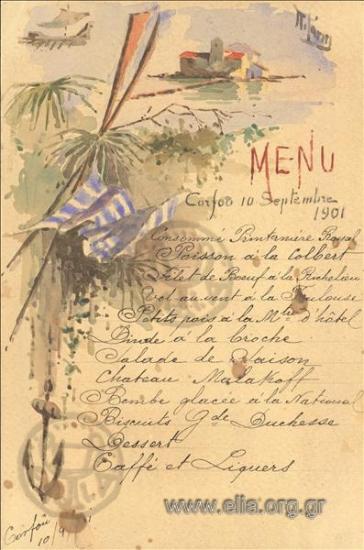 MENU
Corfou 10 Septembre
1901
Consommé Printanière Royal
Poisson à la Colbert
Filet de Boeuf à la Richelieu
Vol au vent à la Toulouse
Petits pois à la Mtre d'hôtel
Dinde à la broche
Salade de Saison
Chateau Malakoff
Bombe glacée à la National
Biscuits Gde Duchesse
Dessert
Caffé et Liquers
www.elia.org.gr
Corfou
10/9